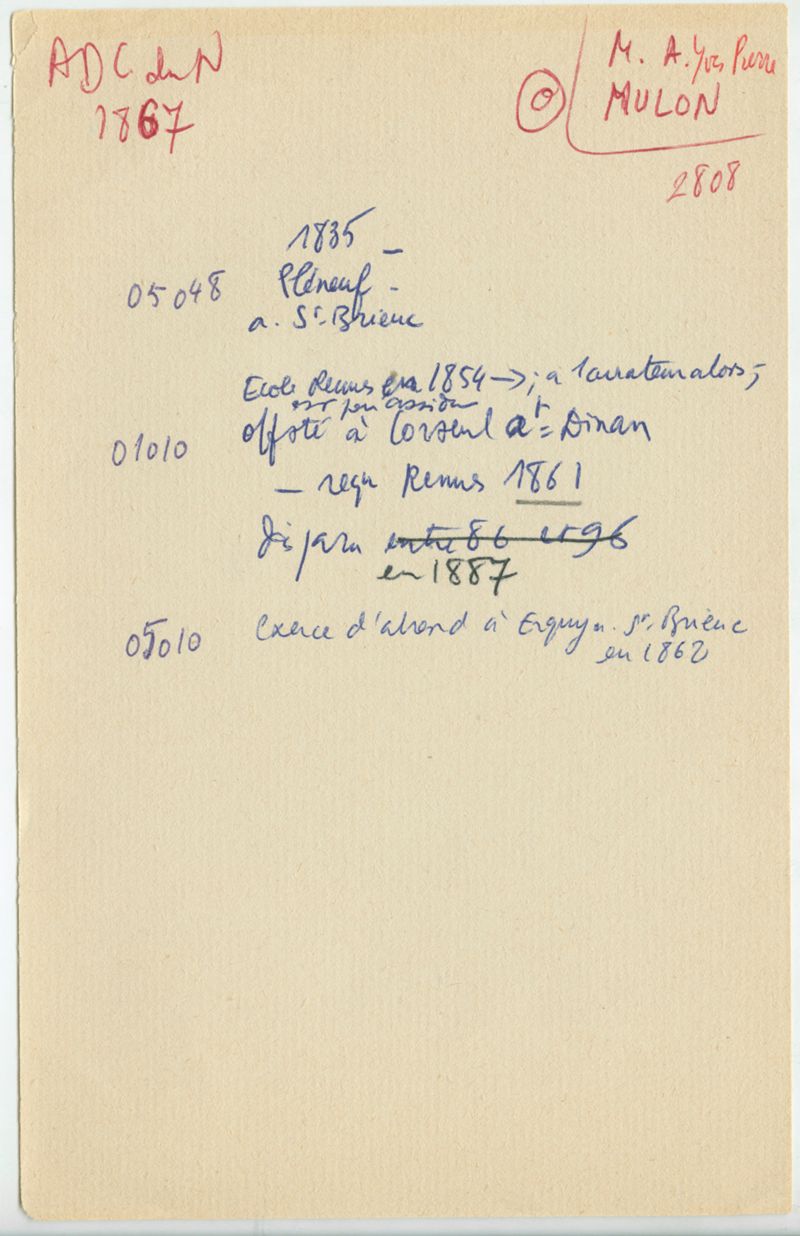 ADC du N
1867
M. A. Yves Pierre
MULON
2808
1835 –
05048 Pléneuf -
a. St-Brieuc
Ecole Rennes en 1854 → ; a
est
offsté à Corseul at = Dinan
– reçu Rennes 1861
01010
disparu entre 86 et 96
en 1887
05010 Exerce d'abord à Erquy a. St-Brieuc
en 1862